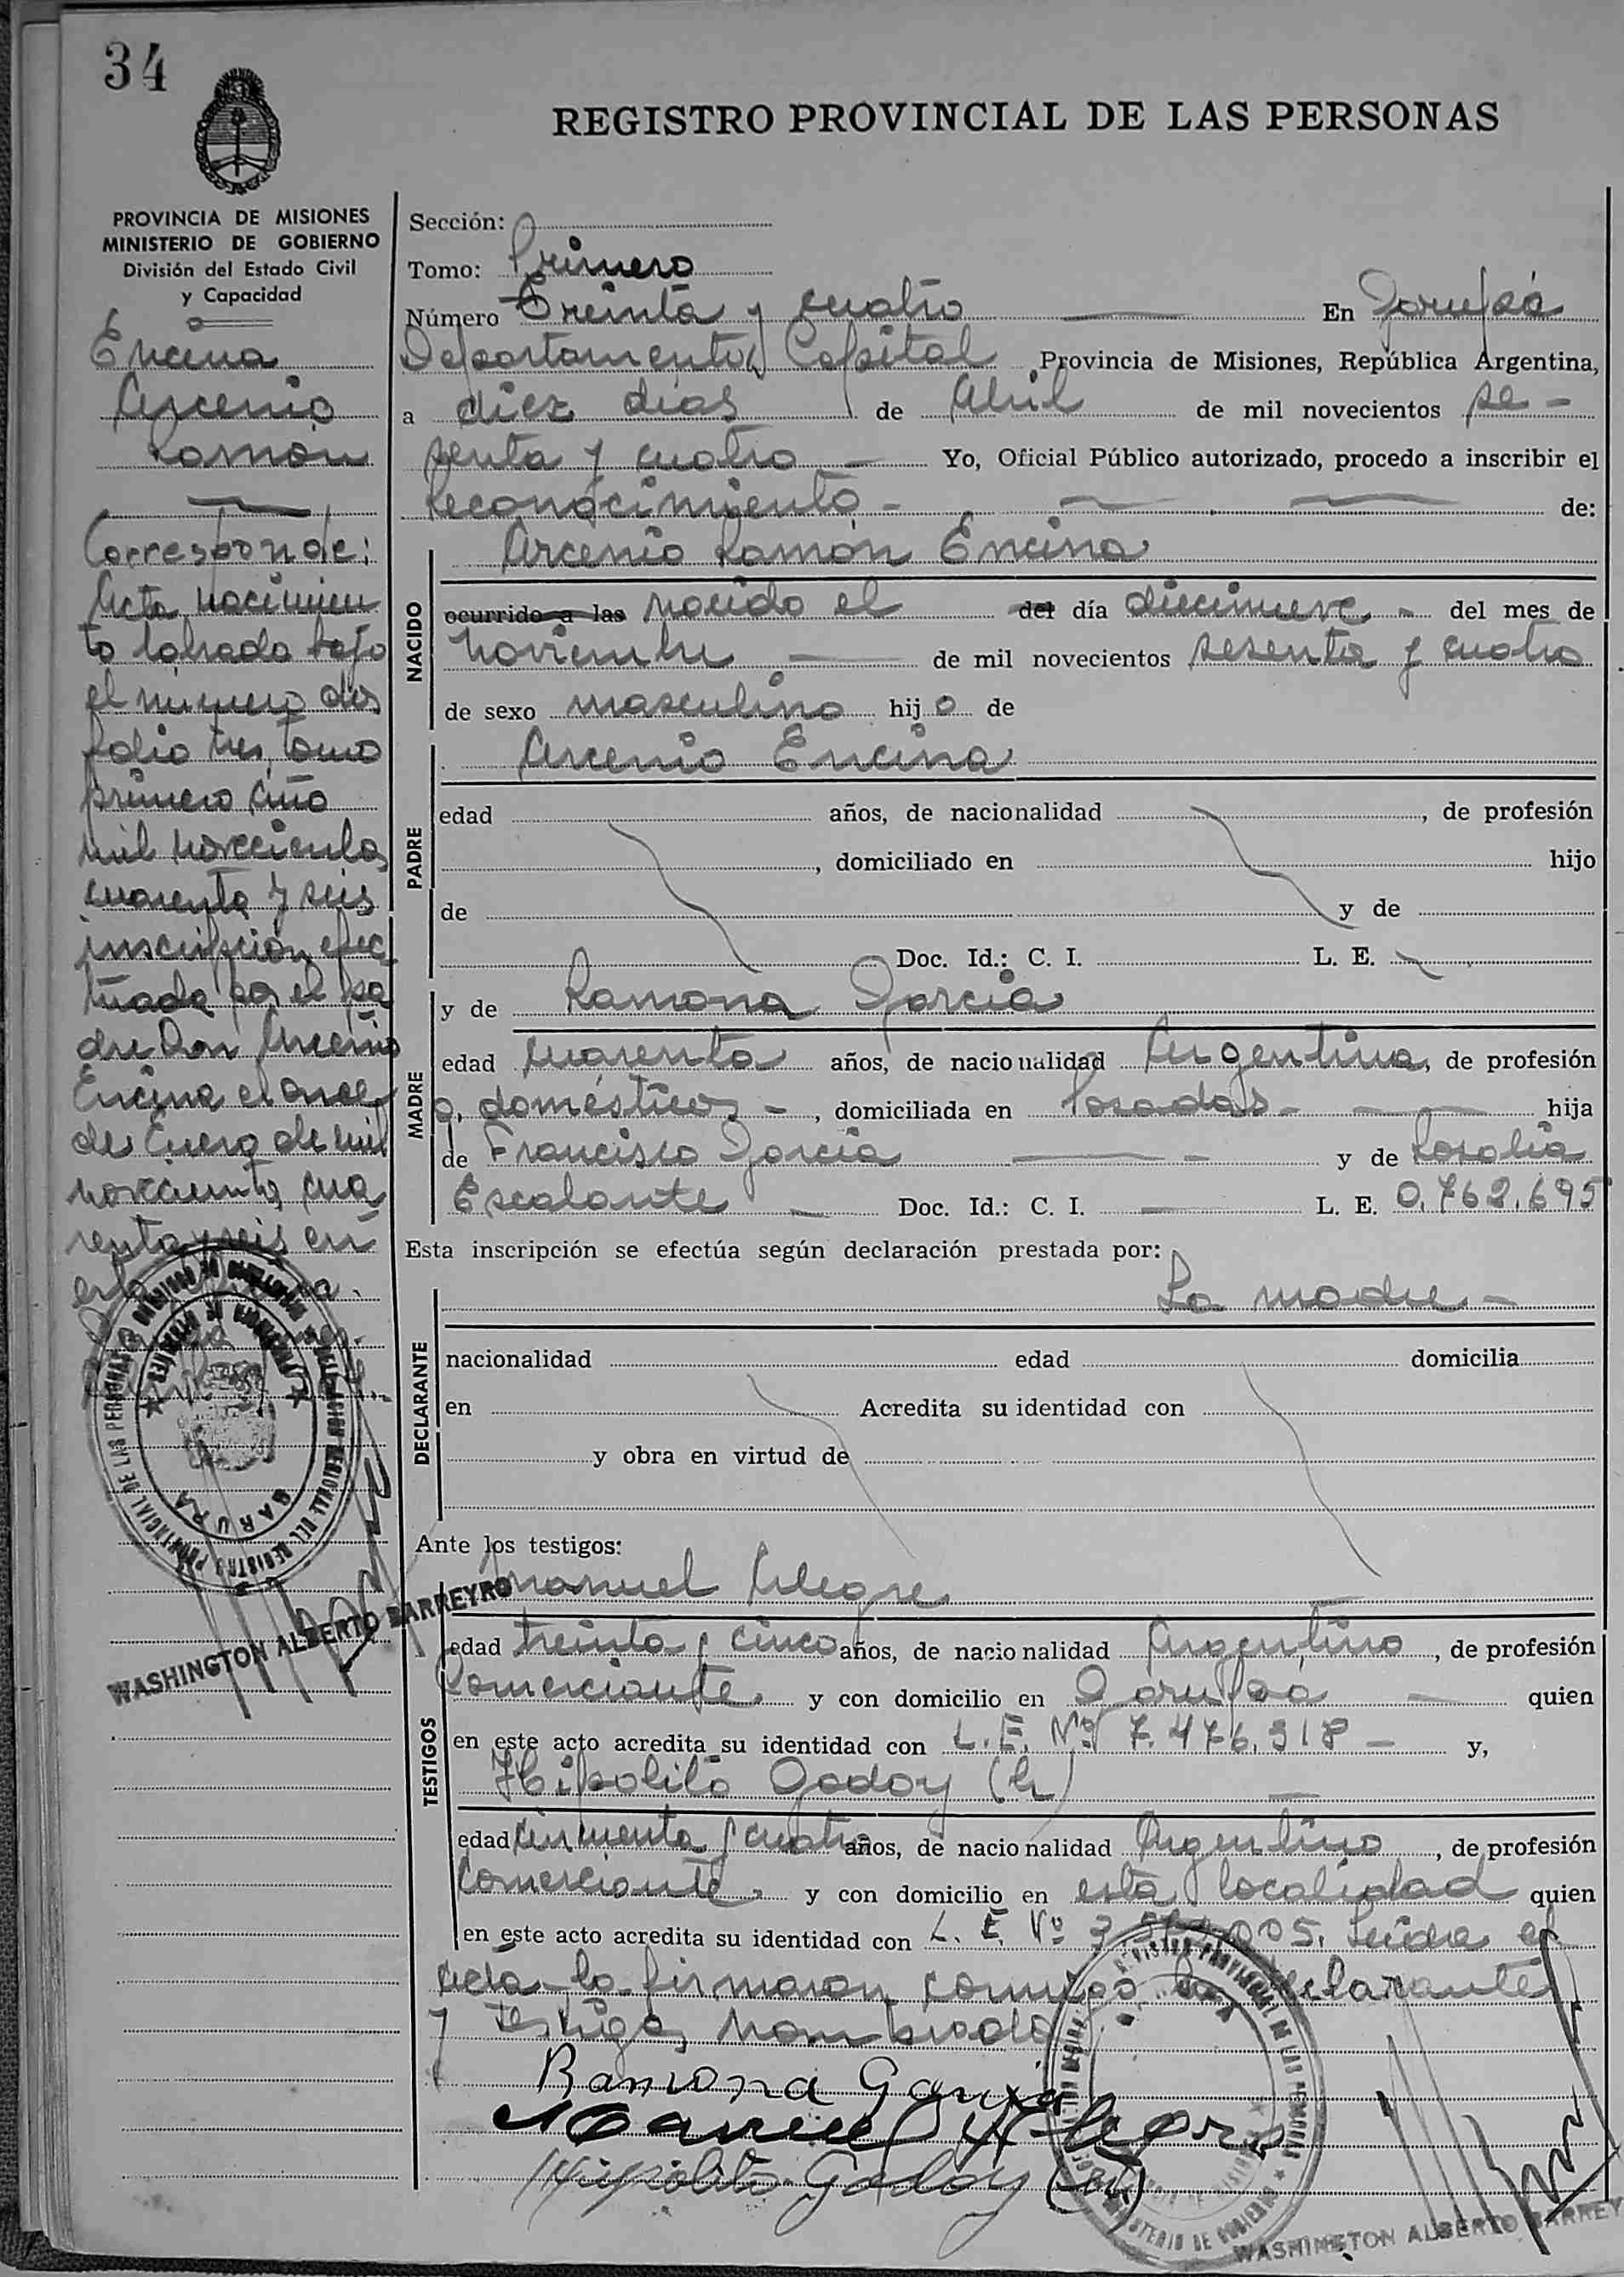 34
REGISTRO PROVINCIAL DE LAS PERSONAS
PROVINCIA DE MISIONES
MINISTERIO DE GOBIERNO
División del Estado Civil
y Capacidad
Encina
Arcenio
Ramón
Corresponde:
Acta nacimien
to labrada bajo
el número dos
folio tres, tomo
primero año
mil novecientos
cuarenta y seis
inscripción efec
tuada por el pa
dre Don Arcenio
Encina el once
de Enero de mil
novecientos cua
renta y seis en
Sección:
Tomo: Primero
Número Treinta y cuatro En Garupá
Departamento Capital Provincia de Misiones, República Argentina,
a diez días de Abril de mil novecientos se-
senta y cuatro Yo, Oficial Público autorizado, procedo a inscribir el
Reconocimiento - de:
Arcenio Ramón Encina
NACIDO
ocurrido a las nacido el del día diecinueve - del mes de
Noviembre de mil novecientos sesenta y cuatro
de sexo masculino hijo de
Arcenio Encina
PADRE
edad años, de nacionalidad , de profesión
, domiciliado en hijo
de y de
Doc. Id.: C. I. L. E.
MADRE
y de Ramona Garcia
edad cuarenta años, de nacionalidad Argentina, de profesión
q. domésticos - , domiciliada en Posadas - hija
de Francisco Garcia - y de Rosalia
Escalante Doc. Id.: C. I. L. E. 0.762.695
Esta inscripción se efectúa según declaración prestada por:
La madre -
DECLARANTE
nacionalidad edad domicilia
en Acredita su identidad con
y obra en virtud de
Ante los testigos:
Manuel Alegre
TESTIGOS
edad treinta y cinco años, de nacionalidad Argentino, de profesión
Comerciante y con domicilio en Garupá quien
en este acto acredita su identidad con L. E. Nº 7.476.318 - y,
Hipolito Godoy (h)
edad cincuenta y cuatro años, de nacionalidad Argentino, de profesión
Comerciante, y con domicilio en esta localidad quien
en este acto acredita su identidad con L. E. Nº 3 005. Leída el
acta la firmaron conmigo la declarante
y testigos nombrados
Ramona Garcia
Manuel Alegre
Hipolito Godoy (h)
REGISTRO PROVINCIAL DE LAS PERSONAS
GARUPA
WASHINGTON ALBERTO BARREYRO
MINISTERIO DE GOBIERNO
WASHINGTON ALBERTO BARREY